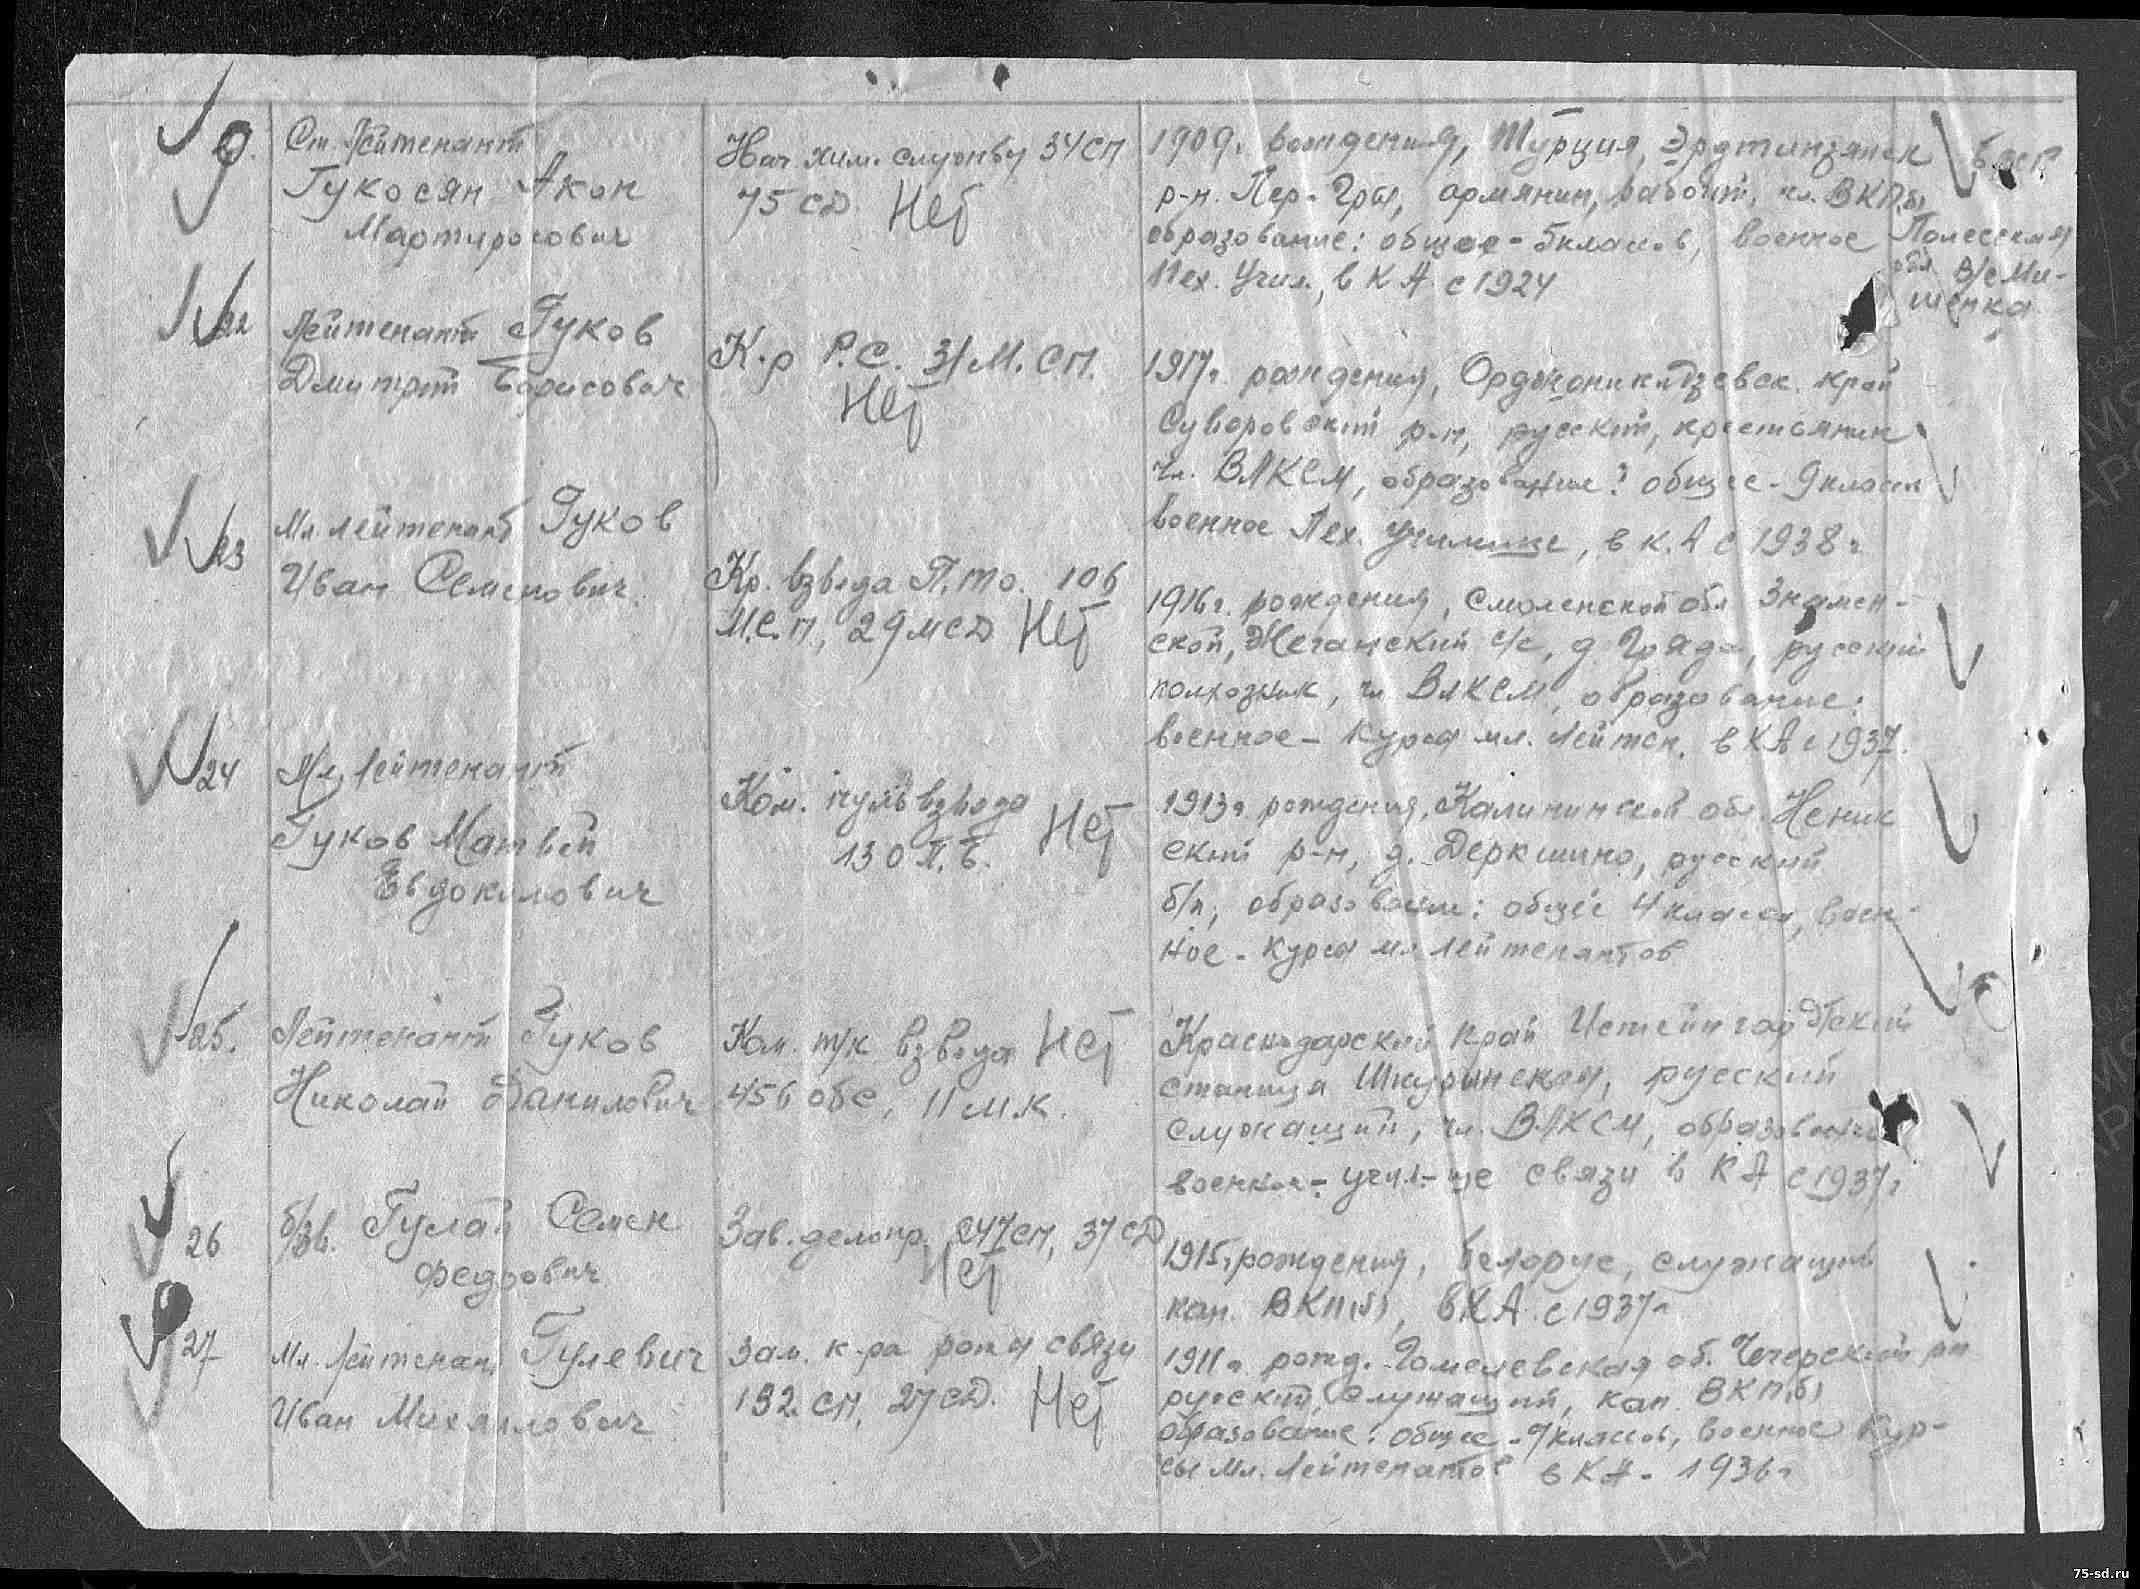 9.
Ст. Лейтенант
Гукосян Акоп
Мартиросович
Нач. хим. службы 34 СП
75 СД. Нет
1909 г. рождения, Турция,
р-н. армянин, чл. ВКП(б)
образование: общее - 5 классов, военное
Пех. Учил., в КА с 1924
Полесская
обл
22
Лейтенант Гуков
Дмитрий Борисович
К-р Р.С. 31 М. СП.
Нет
1917 г. рождения, Орджоникидзевск. край
Суворовский р-н, русский, крестьянин
чл. ВЛКСМ, образование: общее - 9 классов
военное Пех. училище, в К.А с 1938 г
23
Мл. лейтенант Гуков
Иван Семенович.
Кр. взвода П.Т.О. 106
М.С.П, 29 МСД Нет
1916 г. рождения, Смоленской обл Знамен-
ской, с/с, д. Гряда, русский
колхозник, чл ВЛКСМ, образование:
военное - курсы мл. лейтен. в КА с 1937.
24
Мл. Лейтенант
Гуков Матвей
Евдокимович
Ком. пульвзвода
130 П.Б. Нет
1913 г. рождения, Калининской обл.
ский р-н, д. Деркшино, русский
б/п, образование: общее 4 класса, воен-
ное - курсы мл лейтенантов
25.
Лейтенант Гуков
Николай Данилович
Ком. т/к взвода Нет
456 обс, 11 м.к.
Краснодарский край
станица Шкуринская, русский
служащий, чл. ВЛКСМ, образование
военное - учил-ще связи в КА с 1937 г
26
б/зв. Гулай Семен
Федрович
Зав. делопр. 247 СП, 37 СД
Нет
1915 г. рождения, белорус, служащий
кан. ВКП(б), в КА с 1937 г
27
Мл. Лейтенант Гулевич
Иван Михайлович
Зам. к-ра роты связи
132 СП, 27 СД. Нет
1911 г. рожд. Гомелевская об. Чечерский р-н
русский, служащий, кан. ВКП(б)
образование: общее - 7 классов, военное Кур-
сы Мл. Лейтенантов в КА - 1936 г
75-sd.ru